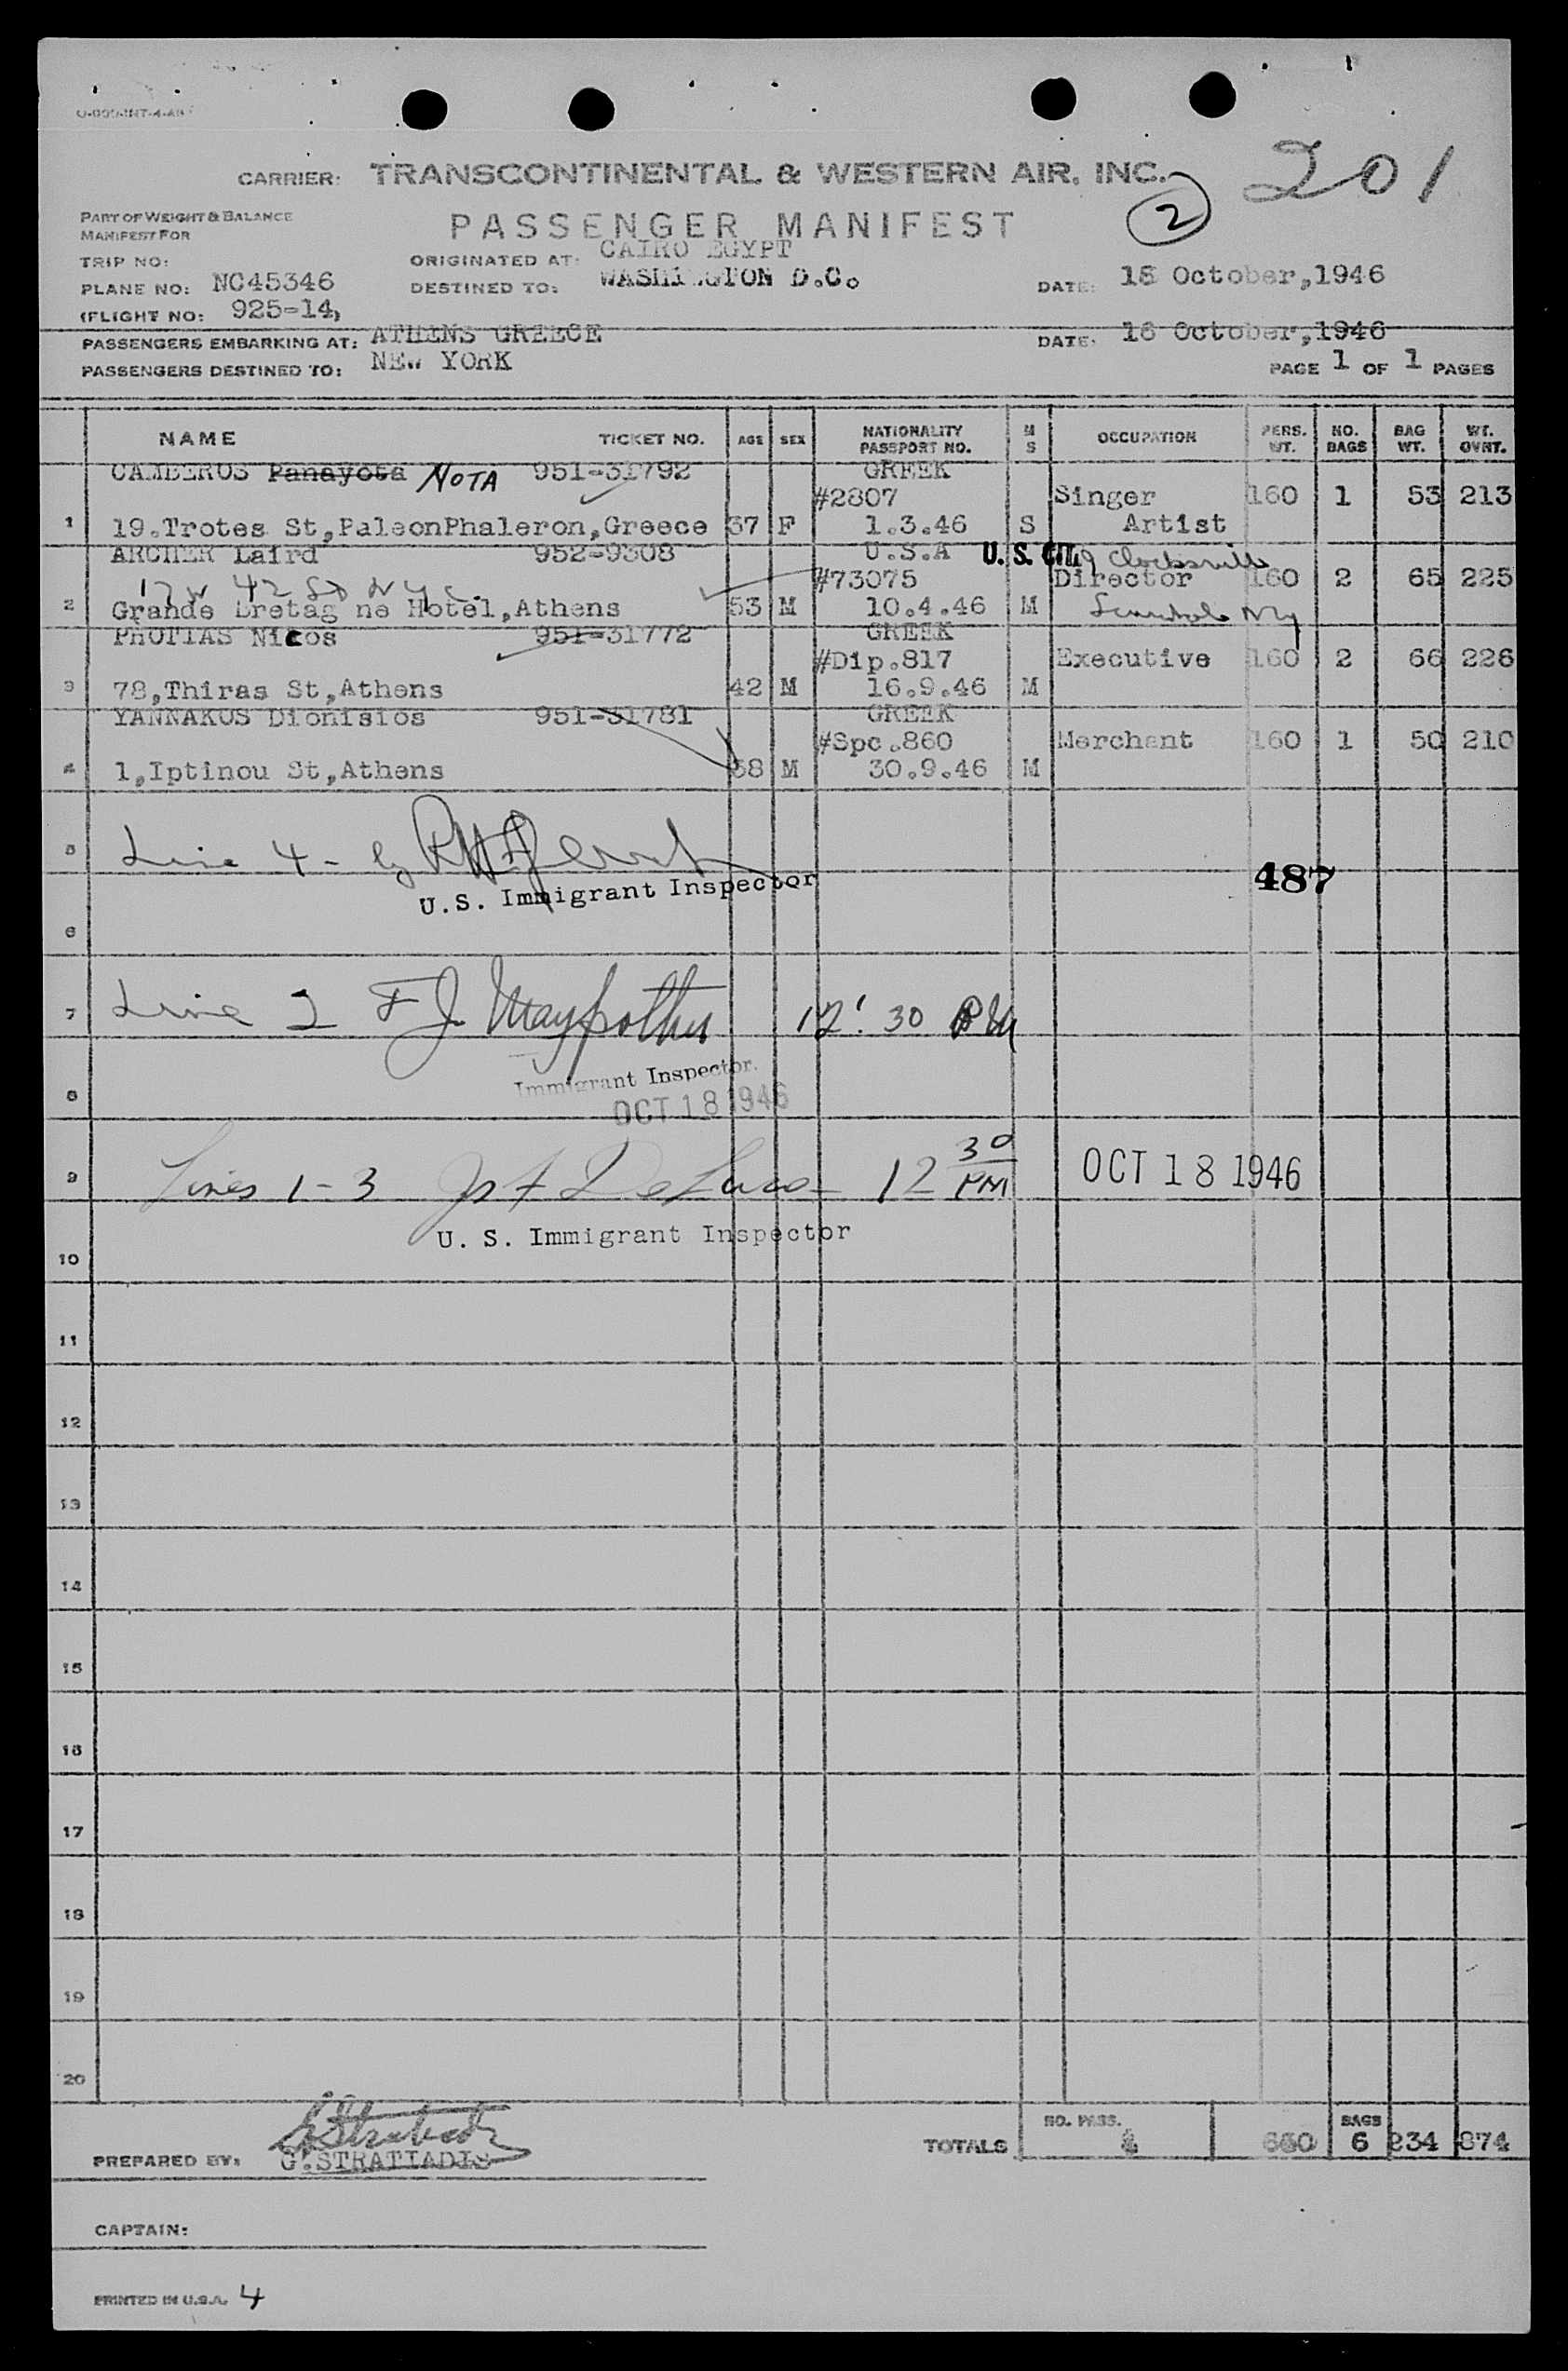 O-000-INT-4-46
CARRIER: TRANSCONTINENTAL & WESTERN AIR, INC. 201
PART OF WEIGHT & BALANCE
MANIFEST FOR
PASSENGER MANIFEST 2
TRIP NO: ORIGINATED AT: CAIRO EGYPT
PLANE NO: NC45346 DESTINED TO: WASHINGTON D.C. DATE: 15 October,1946
(FLIGHT NO: 925-14)
PASSENGERS EMBARKING AT: ATHENS GREECE DATE: 16 October,1946
PASSENGERS DESTINED TO: NEW YORK PAGE 1 OF 1 PAGES
NAME TICKET NO. AGE SEX NATIONALITY PASSPORT NO. M S OCCUPATION PERS. WT. NO. BAGS BAG WT. WT. OVRT.
CAMBEROS Panayota NOTA 951-31792 GREEK
#2807 Singer 160 1 53 213
1 19.Trotes St,PaleonPhaleron,Greece 37 F 1.3.46 S Artist
ARCHER Laird 952-9308 U.S.A U.S. CIT.
17 W 42 St NYC #73075 Director 160 2 65 225
2 Grande Bretag ne Hotel,Athens 53 M 10.4.46 M NY
PHOTIAS Nicos 951-31772 GREEK
#Dip.817 Executive 160 2 66 226
3 78,Thiras St,Athens 42 M 16.9.46 M
YANNAKOS Dionisios 951-31781 GREEK
#Spc.860 Merchant 160 1 50 210
4 1,Iptinou St,Athens 38 M 30.9.46 M
5 Line 4 - by
U.S. Immigrant Inspector 487
6
7 Line 2 F J 12:30 PM
Immigrant Inspector.
8 OCT 18 1946
9 Lines 1-3 12 30 PM OCT 18 1946
U. S. Immigrant Inspector
10
11
12
13
14
15
16
17
18
19
20
TOTALS NO. PASS. 4 640 BAGS 6 234 874
PREPARED BY: G.STRATIADIS
CAPTAIN:
PRINTED IN U.S.A. 4